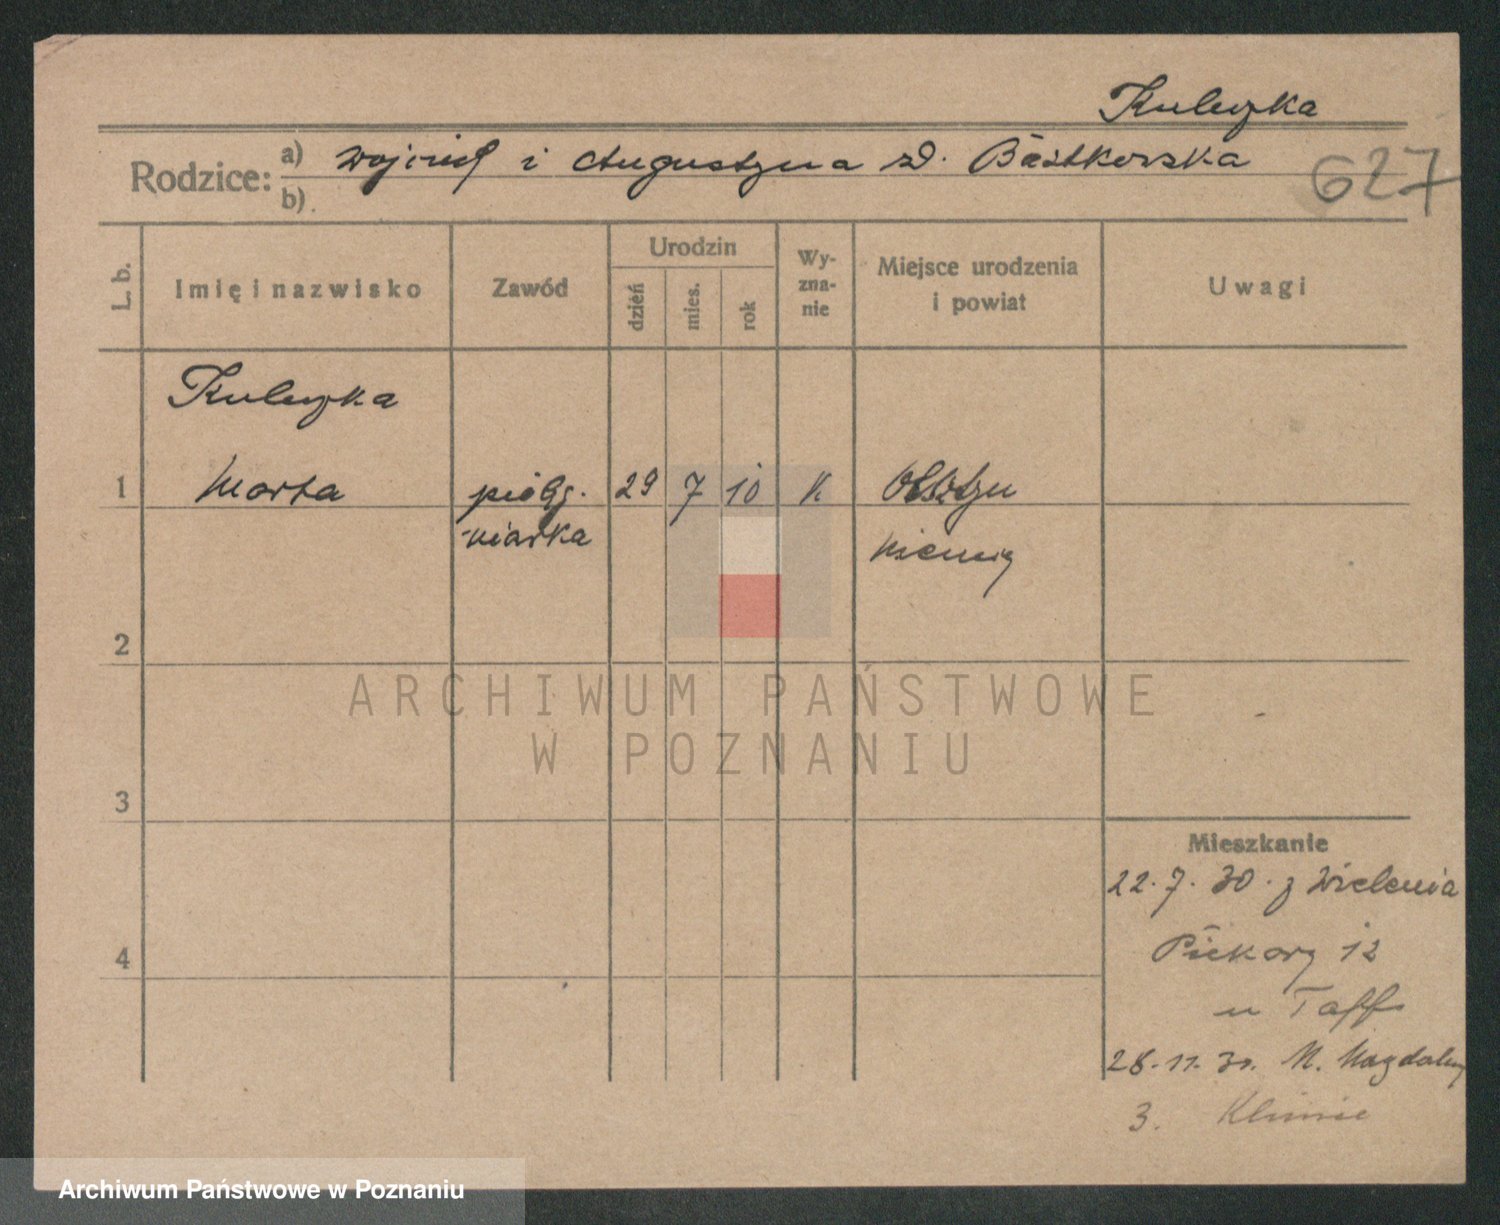 Kuleczka
Rodzice: a) Wojciech i Augustyna zd. Bastkowska
b)
627
L. b. Imię i nazwisko Zawód Urodzin dzień mies. rok Wyznanie Miejsce urodzenia i powiat Uwagi
Kuleczka
1 Marta pielęg. 29 7 10 K Olsztyn
niarka Niemcy
2
ARCHIWUM PAŃSTWOWE
W POZNANIU
3
Mieszkanie
22.7.30. z Wielenia
4 Piekary 12
u Taff
28.11.30. M. Magdaleny
3. Klinice
Archiwum Państwowe w Poznaniu